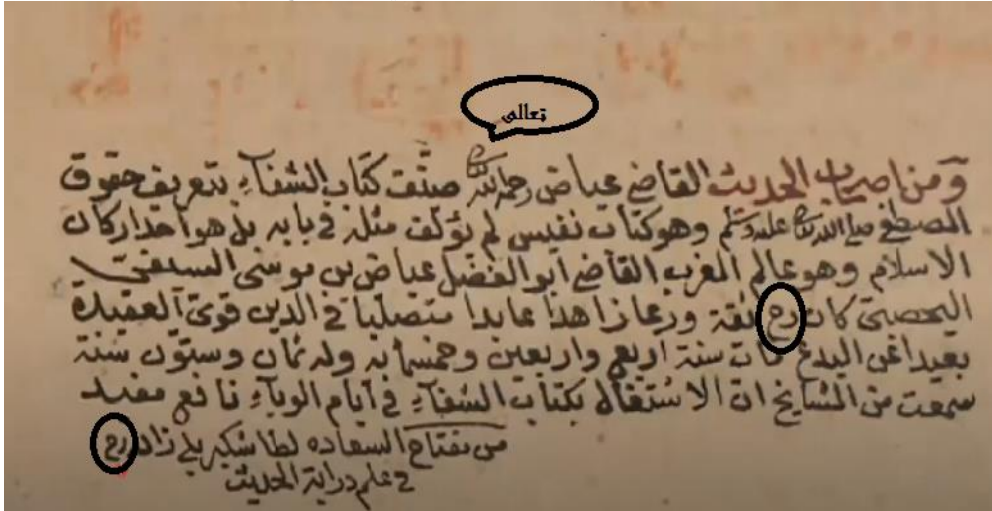 تعالى
ومن اصحاب الحديث القاضي عياض رحمه الله تعالى صنف كتاب الشفآء بتعريف حقوق
المصطفى صلى الله تعالى عليه وسلم وهو كتاب نفيس لم يؤلف مثله في بابه بل هو احد اركان
الاسلام وهو عالم المغرب القاضي ابو الفضل عياض بن موسى السبتي
اليحصبي كان رح ثقة ورعا زاهدا عابدا متصلبا في الدين قوى العقيدة
بعيدا عن البدع مات سنة اربع واربعين وخمسمايه وله ثمان وستون سنة
سمعت من المشايخ ان الاشتغال بكتاب الشفآء في ايام الوبآء نافع مفيد
من مفتاح السعاده لطاشكبرى زاده رح
في علم دراية الحديث